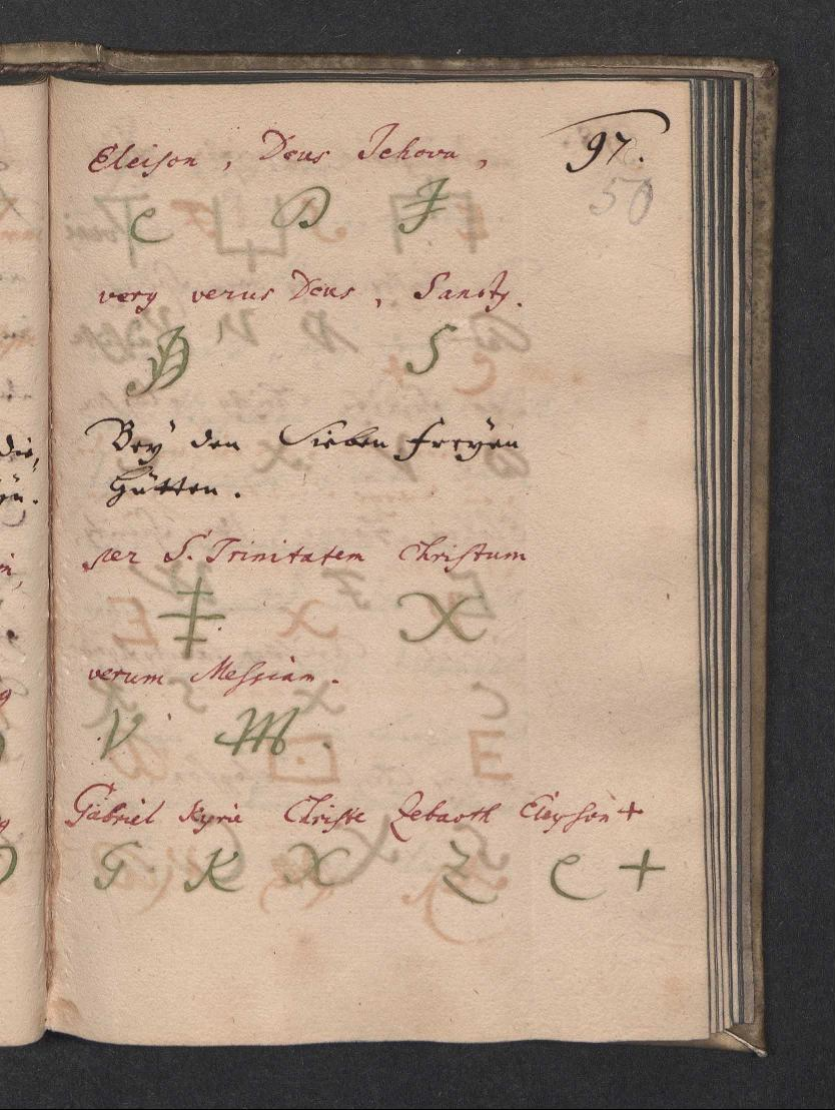 Eleison, Deus Jehova, 97.
50
C D J
very verus Deus, Sancty.
D S
Bey den Sieben freyen
Hütten.
per S. Trinitatem Christum
‡ X
verum Messiam.
V M.
Gabriel Kyrie Christe Zebaoth Eleyson +
G. K X Z C +